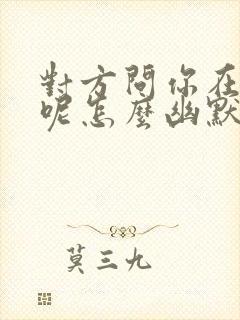 對方問你在
呢怎麼幽默
莫三九